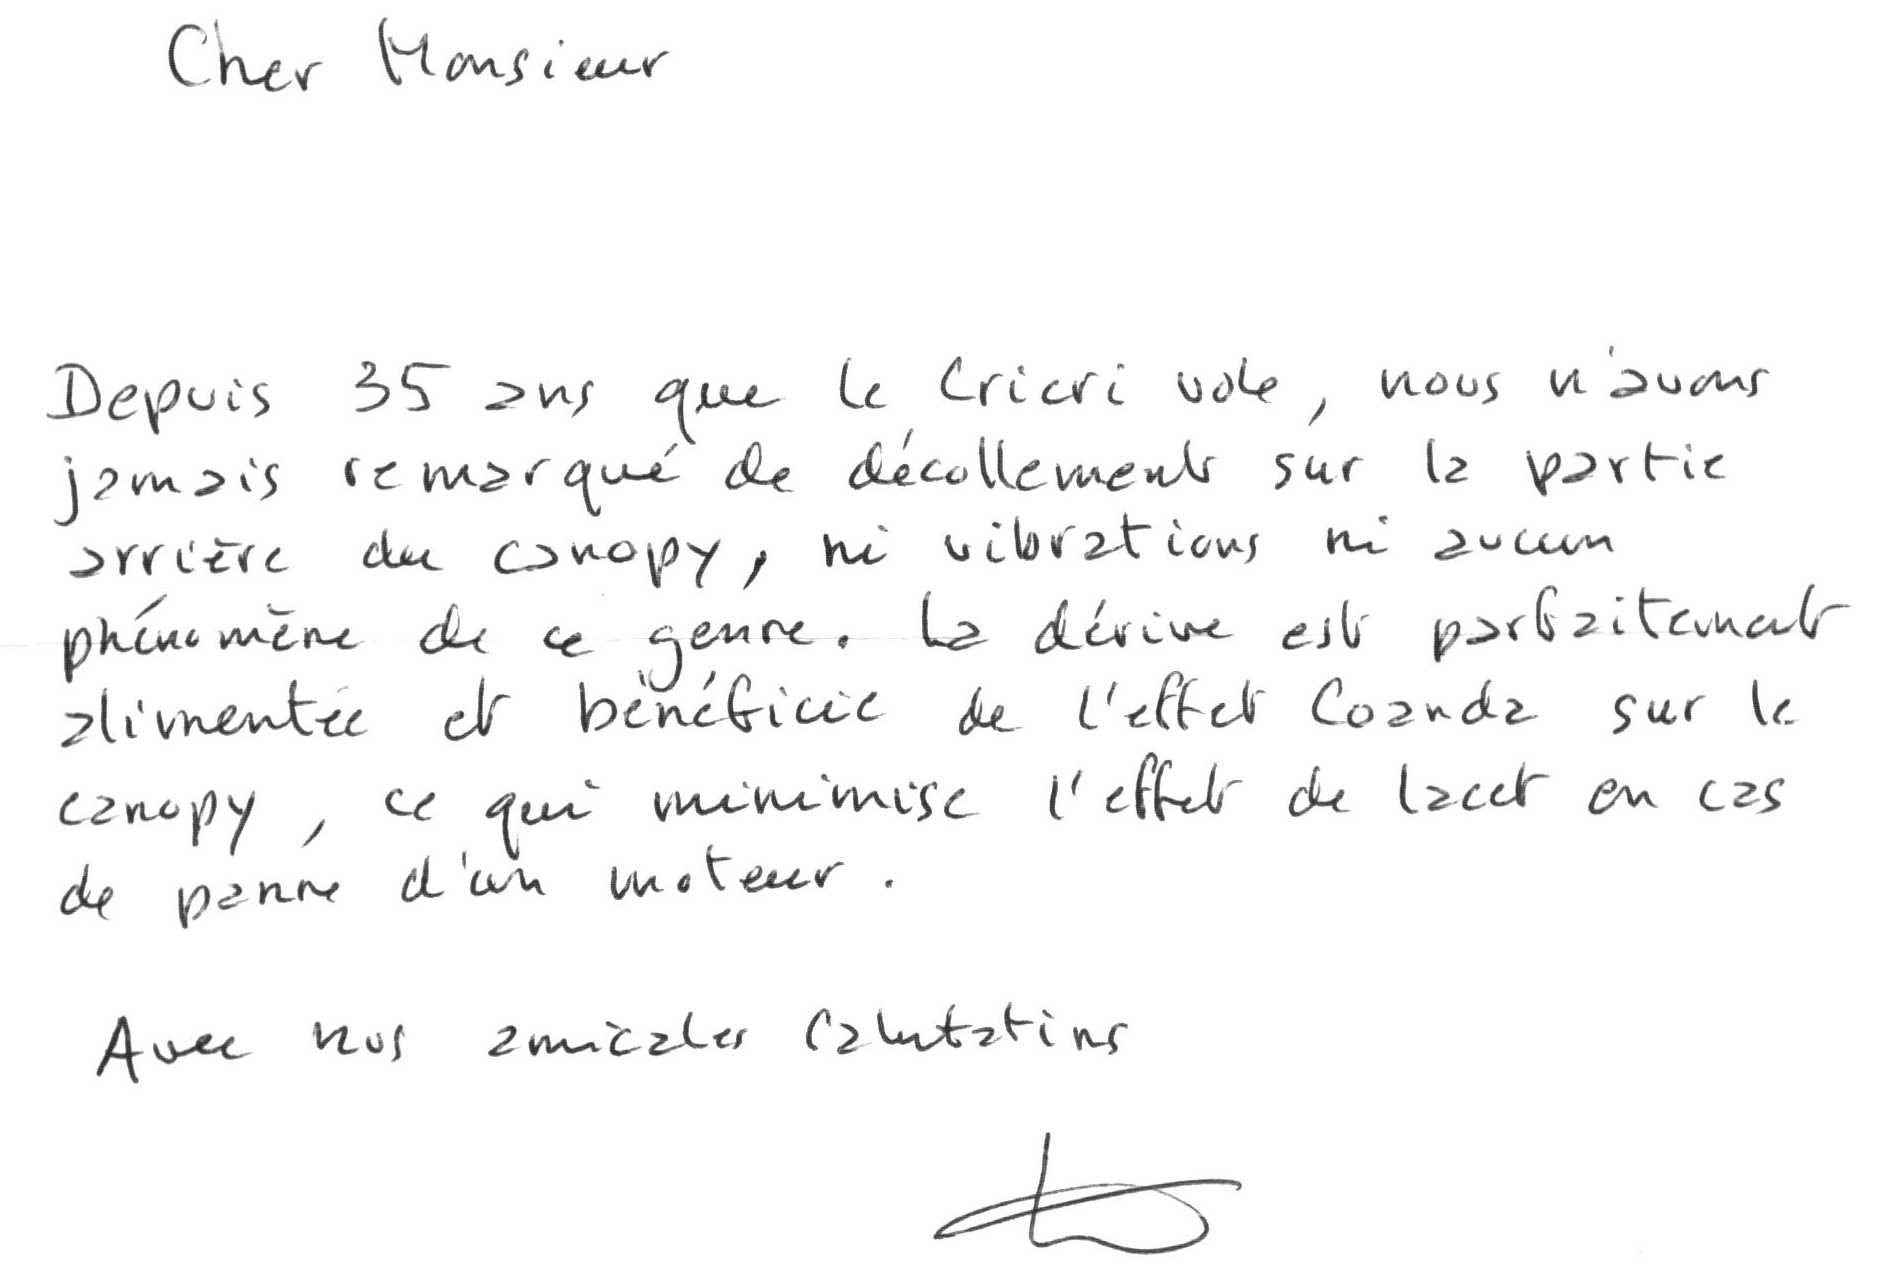 Cher Monsieur
Depuis 35 ans que le Cricri vole, nous n'avons
jamais remarqué de décollement sur la partie
arrière du canopy, ni vibrations ni aucun
phénomène de ce genre. La dérive est parfaitement
alimentée et bénéficie de l'effet Coanda sur le
canopy, ce qui minimise l'effet de lacet en cas
de panne d'un moteur.
Avec nos amicales salutations